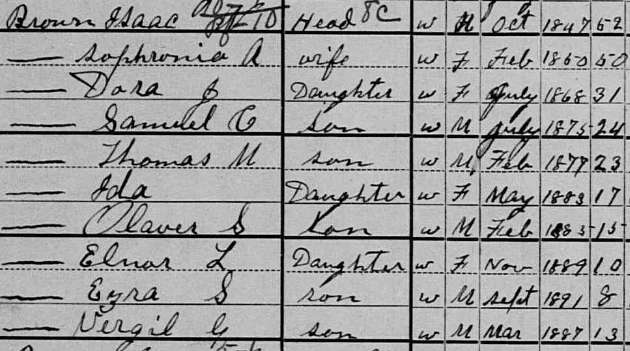 Brown Isaac Head w M Oct 1847 52
—— Sophronia A wife w F Feb 1850 50
—— Dora J Daughter w F July 1868 31
—— Samuel C son w M July 1875 24
—— Thomas M son w M Feb 1877 23
—— Ida Daughter w F May 1883 17
—— Olaver S son w M Feb 1885 15
—— Elnor L Daughter w F Nov 1889 10
—— Ezra S son w M Sept 1891 8
—— Vergil G son w M Mar 1887 13